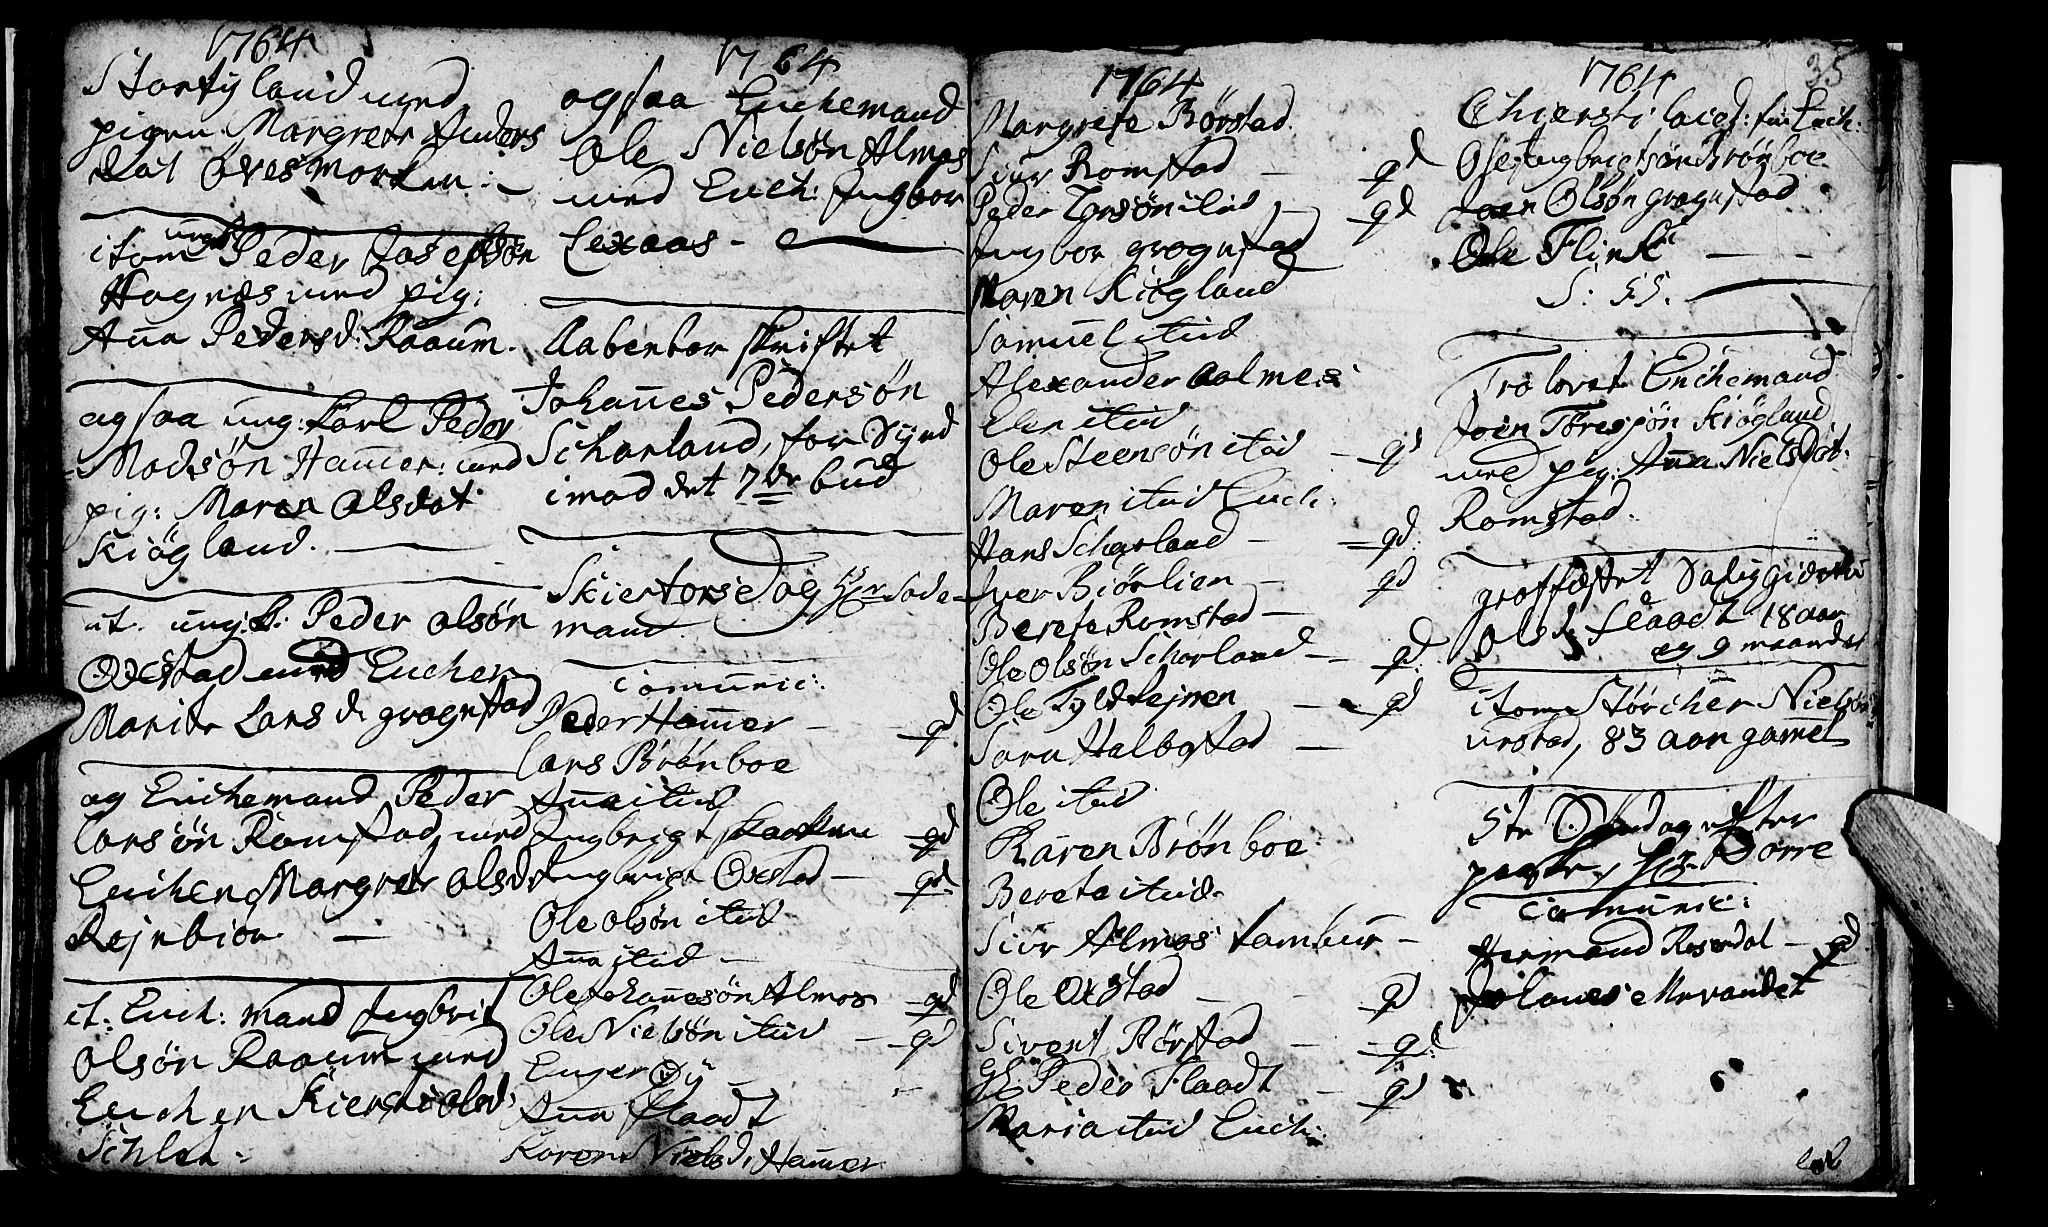 1764
Stortÿland med
pigen Margrete Anders
dat Øvesmorken:
item ungk: Peder Josephsøn
Hagnæs med pig:
Aña Pedersd: Raaum.
ogsaa ung: karl Peder
Madsøn Hamer: med
pig: Maren Olsdat
Kiøgland.
it. ung.k: Peder Olsøn
Oxestad med Encken
Marite Larsd. grognstad
og Enckemand Peder
Larsøn Romstad, med
Encken Margrete Olsdat
Rejnbiør
it: Enck: mand Ingbrit
Olsøn Raaum med
Encken Kiersti Olsd.
1764
ogsaa Enckemand
Ole Nielsøn Almos
med Enck: Ingbor
Lexaas
Aabenbar skriftet
Johañes Pedersøn
Scharland, for Synd
imod det 7de bud
Skiertorsdag
mand
Comunic:
Peder Hamer gd
Lars Brønboe
Aña itid
Ingbrigt gd
Ingbrigt Oxstad gd
Ole Olsøn itid
Aña itid
Ole Johañesøn Almos gd
Ole Nielsøn itid gd
Enger Øÿ
Aña flaadt
Karen Nielsd. Hamer
1764
Margrete Børstad
Siur Romstad gd
Peder itid gd
Ingbor grognstad
Maren Kiøgland
Samuel itid
Alexander Aalmes
Elen itid
Ole Steensøn itid gd
Maren itid Enck:
Hans Scharland gd:
Iver Biørlien gd
Berete Romstad
Ole Olsøn Scharland gd
Ole gd
Sara Halbostad
Ole itid
Karen Brønboe
Bereta itid
Siur Almos tambur
Ole Oxstad gd
Sivert Børstad gd
Peder Flaadt gd
Maria itid Enck:
1764
35
Ole Ingbrigtsøn Brønboe
Joen Olsøn grognstad
Ole Flink
S: 55.
Trolovet Enckemand
Joen Toresøn Kiøgland
med pig: Aña Nielsdat
Romstad.
graffæstet
Olsd: flaadt 18 aar
og 9 maander
item Størcker Nielsøn
urstad, 83 aar gamel
5te Søndag efter
paaske, Hr. Borre
Comunic:
Hermand Rosendal gd